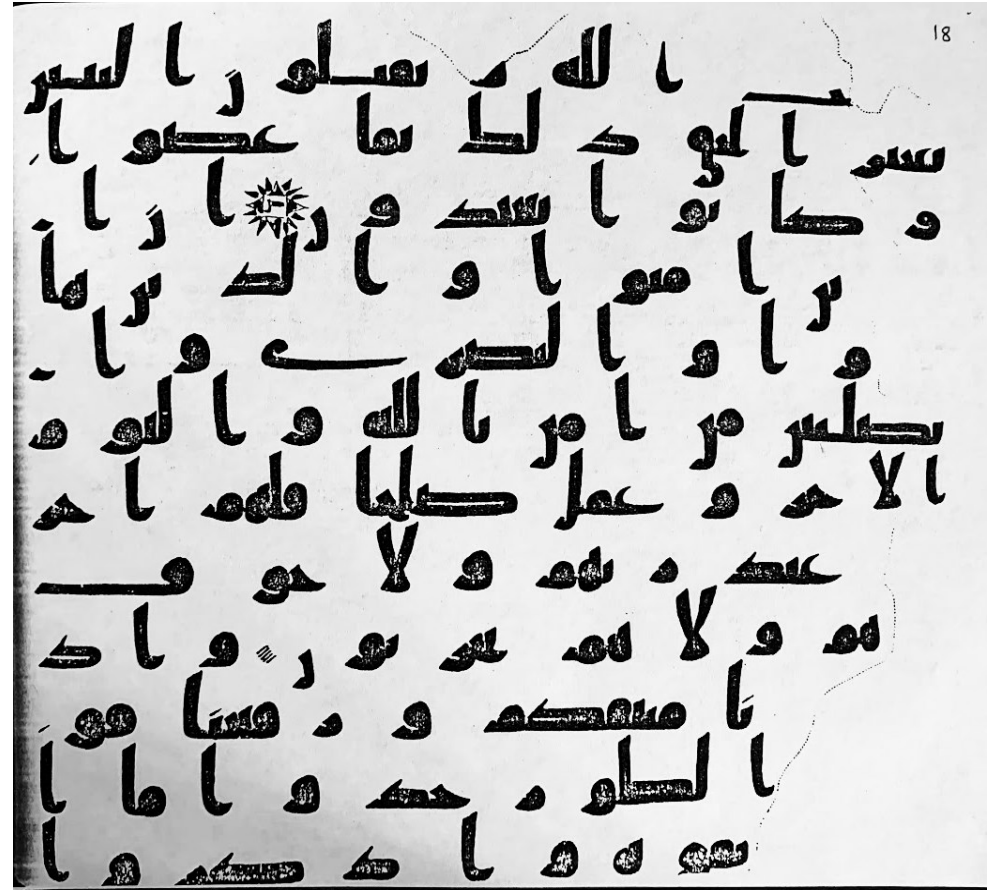 ـت الله و يقتلون النبين
بغير الحق ذلك بما عصوا
وكانوا يعتدون ان ا
ين امنوا والذين ها
دوا والنصرى وا
لصبين من امن بالله واليوم
الاخر وعمل صلحا فلهم اجر
عند ربهم ولا خوف
هم ولا هم يحزنون واذ
نا ميثقكم ورفعنا فوق
الطور خذوا ما ا
بقوة واذكروا
18